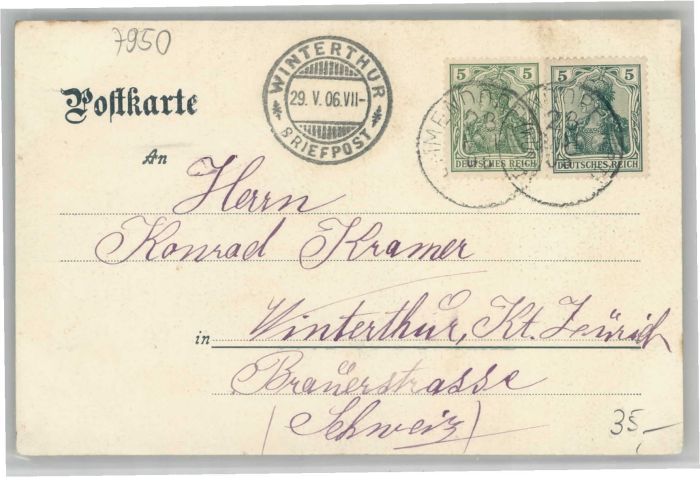 7950
WINTERTHUR
29. V. 06. VII-
BRIEFPOST
5 5
DEUTSCHES REICH
5 5
DEUTSCHES REICH
Postkarte
An
Herrn
Konrad Kramer
in Winterthur, Kt. Zürich
Brauerstrasse
(Schweiz)
35,-